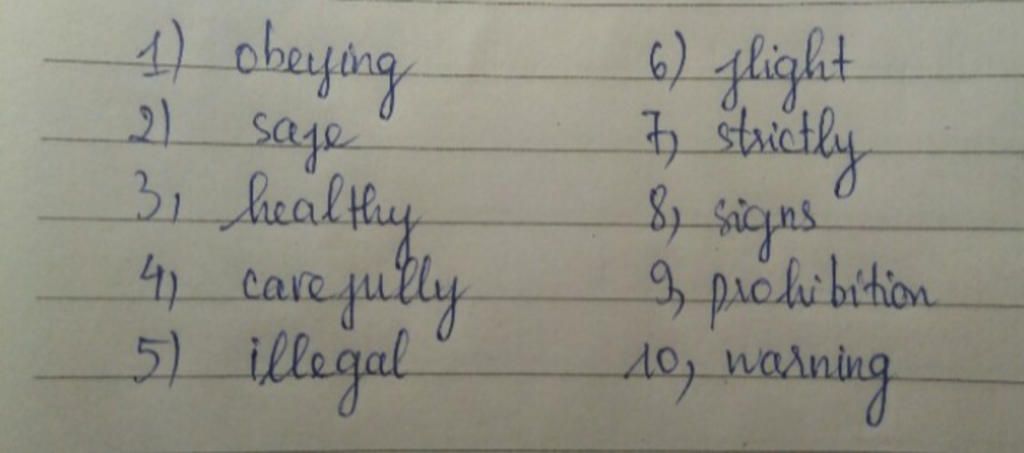 1) obeying
2) safe
3, healthy
4, carefully
5) illegal
6) flight
7, strictly
8, signs
9, prohibition
10, warning